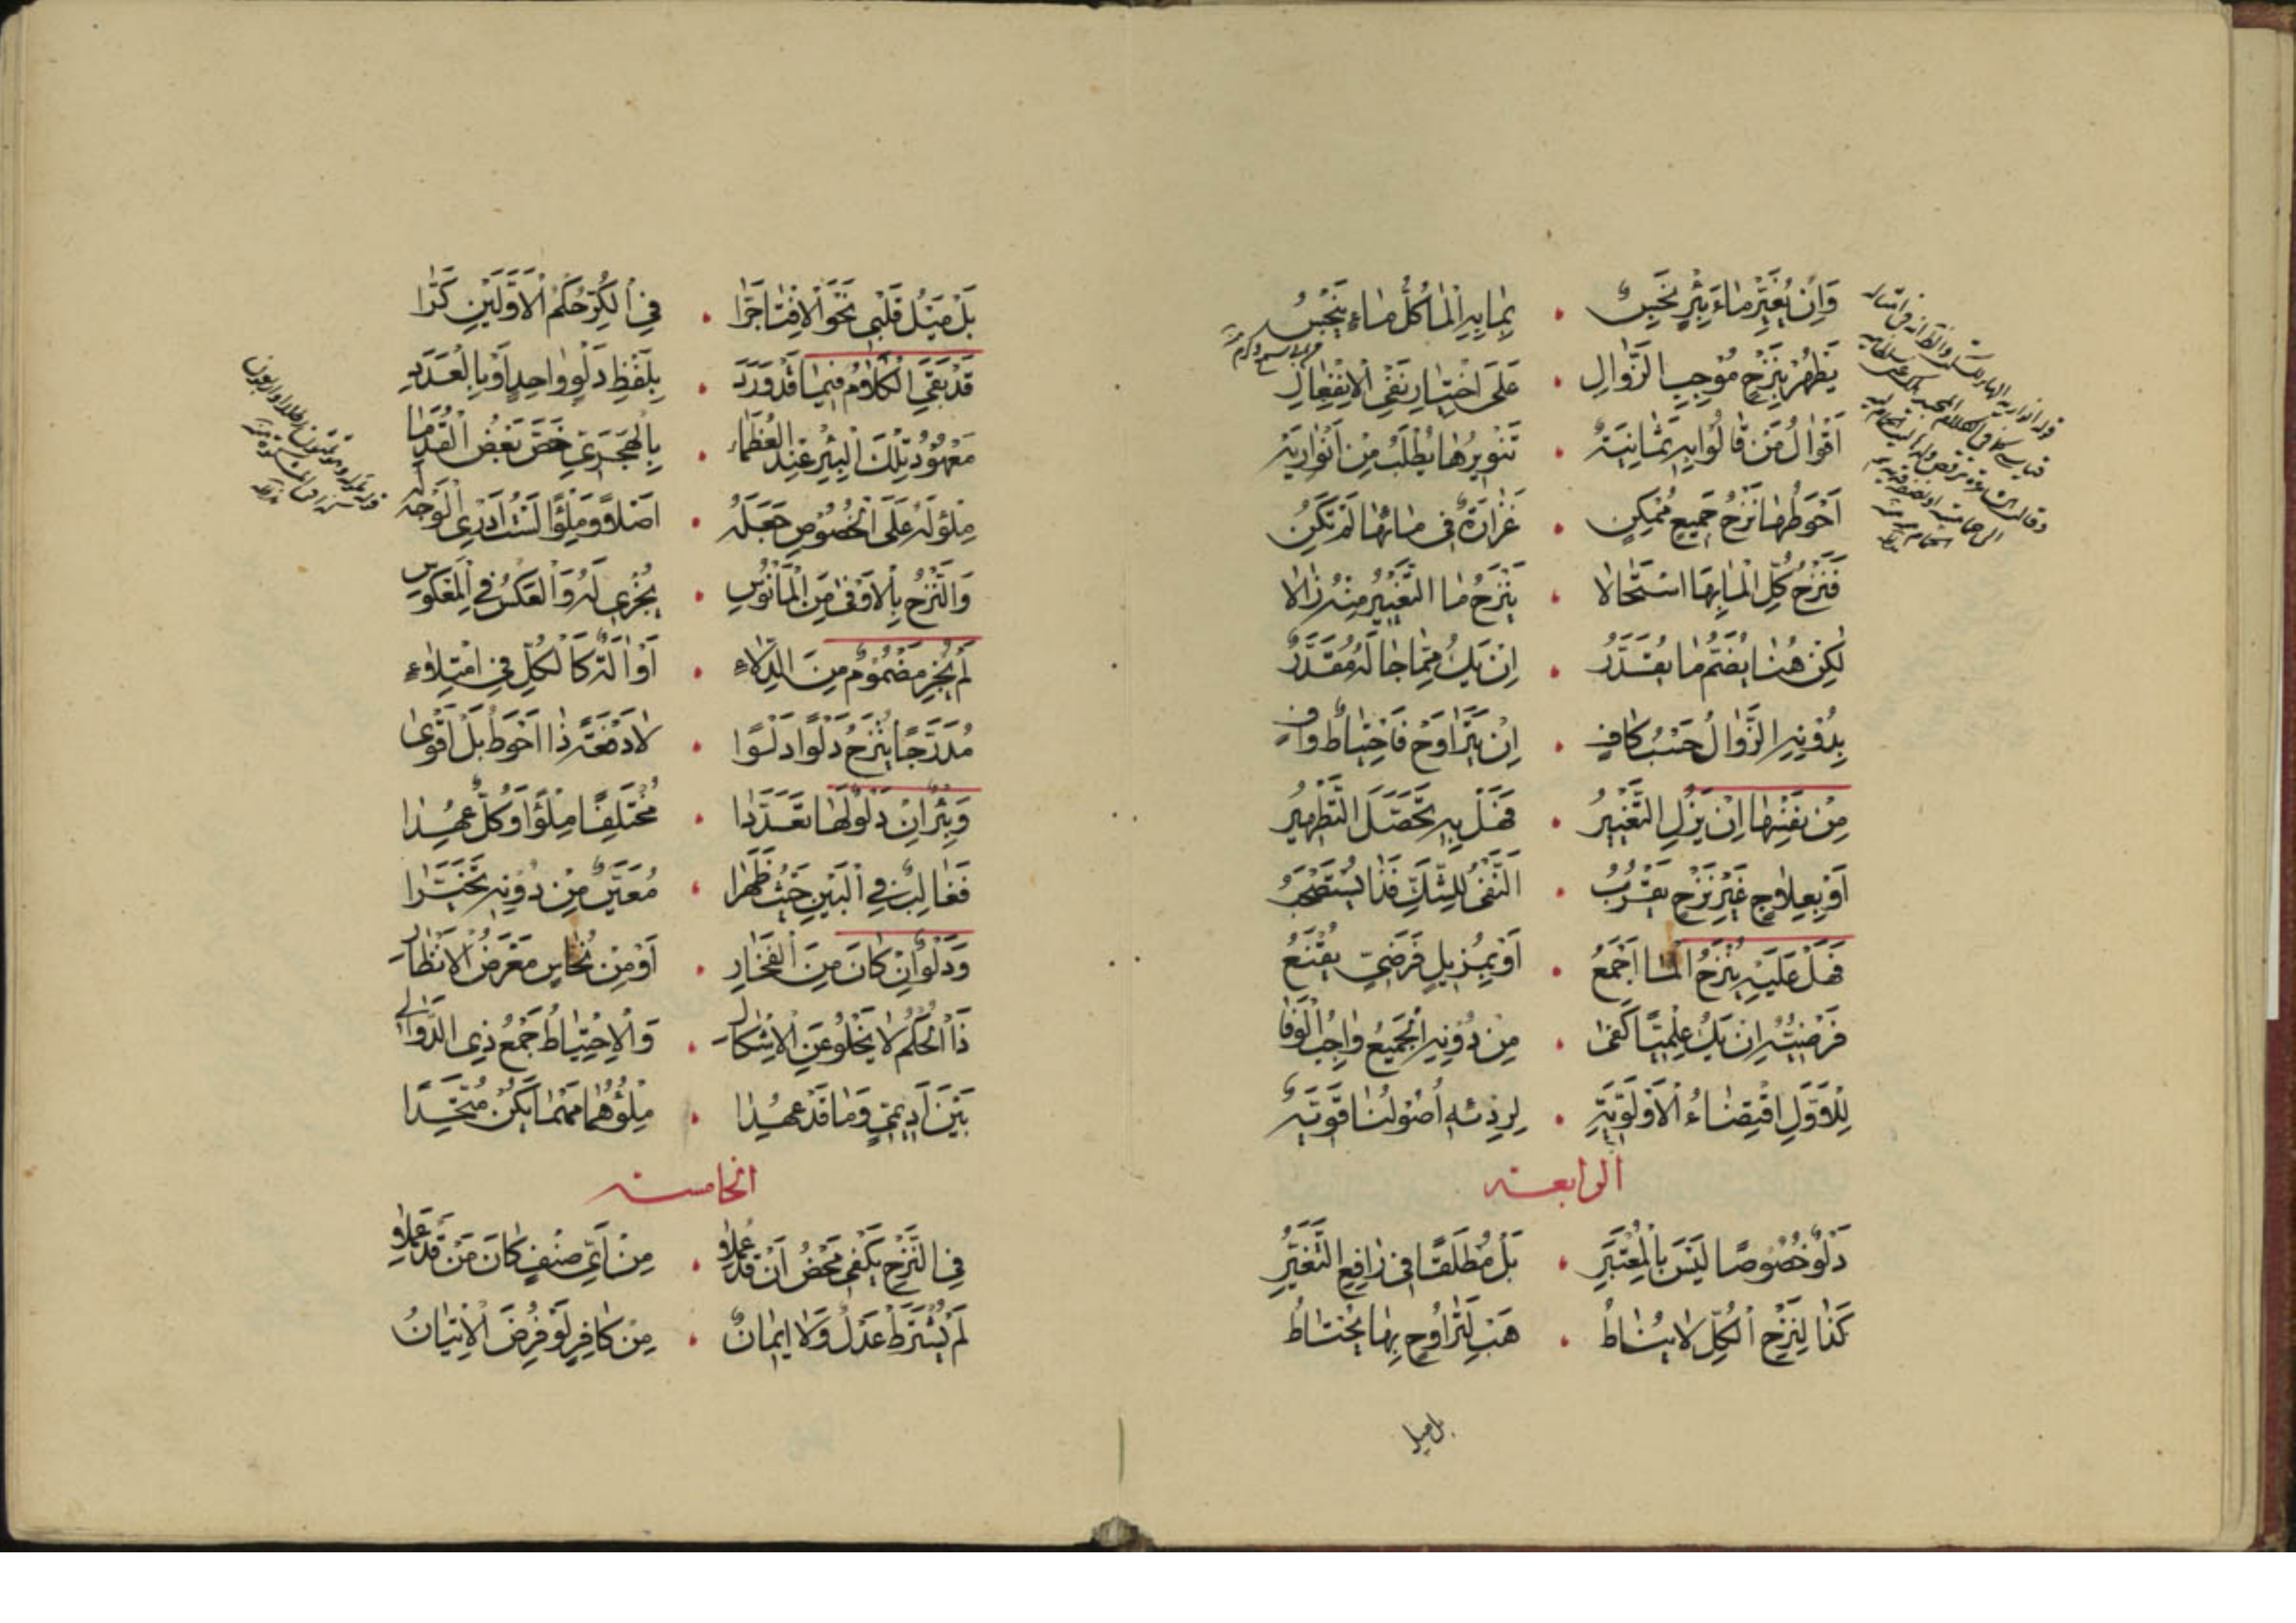 وَاِنْ يُغَيِّرْ مٰاءَ بِئْرٍ نَجِسٌ • بِمٰا بِهِ الْمٰا كُلُّ مٰاءٍ يَنْجُسُ
يَطْهُرْ بِنَزْحِ مُوْجِبِ الزَّوٰالِ • عَلَى اخْتِيٰارِ نَفْيِ الْاِنْفِعٰالِ
اَقْوٰالُ مَنْ قٰالُوا بِهِ ثَمٰانِيَةٌ • تَنْوِيرُهٰا يُطْلَبُ مِنْ اَنْوٰارِيَهْ
اَحْوَطُهٰا نَزْحُ جَمِيعٍ مُمْكِنٍ • غَزٰارَةٌ فِى مٰائِهٰا لَمْ تَكُنِ
فَنَزْحُ كُلِّ الْمٰا بِهَا اسْتَحٰالا • يُنْزَحُ مَا التَّغْيِيرُ مِنْهُ زٰالا
لٰكِنْ هُنٰا يُضَمُّ مٰا يُقَدَّرُ • اِنْ يَكُ مِمّٰا جٰا لَهُ مُقَدَّرٌ
بِدُوْنِهِ الزَّوٰالُ حَسْبُ كٰافٍ • اِنْ يَتَرٰاوَحْ فَاحْتِيٰاطٌ وٰافٍ
مِنْ نَفْسِهٰا اِنْ يَزُلِ التَّغْيِيرُ • فَهَلْ بِهِ تَحَصَّلَ التَّطْهِيرُ
اَوْ بِعِلٰاجٍ غَيْرِ نَزْحٍ يَقْرُبُ • النَّفْىُ لِلشَّكِّ فَذٰا يُسْتَصْحَبُ
فَهَلْ عَلَيْهِ يُنْزَحُ الْمٰا اَجْمَعُ • اَوْ بِمُزِيلٍ فَرَضِيٍّ يُقْنَعُ
فَرْضِيُّهُ اِنْ يَكُ عِلْمِيًّا كَفىٰ • مِنْ دُوْنِهِ الْجَمِيعُ وٰاجِبُ الْوَفٰا
لِلْاَوَّلِ اقْتِضٰاءُ الْاَوْلَوِيَّةِ • لِرِدْئِهِ اُصُولُنٰا قَوِيَّةٌ
الرابعة
دَلْوٌ خُصُوصًا لَيْسَ بِالْمُعْتَبَرِ • بَلْ مُطْلَقًا فِى رٰافِعِ التَّغَيُّرِ
كَذٰا لِنَزْحِ الْكُلِّ لا يُنٰاطُ • هَبْ لِتَرٰاوُحٍ بِهٰا يُحْتٰاطُ
بل ميل
بَلْ مَيْلُ قَلْبِى نَحْوَ الْاِفْتٰا جَرّٰا • فِى الْكُرِّ حُكْمُ الْاَوَّلَيْنِ كَرّٰا
قَدْ بَقِيَ الْكَلٰامُ فِيمٰا قَدْ وَرَدَ • بِلَفْظِ دَلْوٍ وٰاحِدٍ اَوْ بِالْعَدَدِ
مَعْهُوْدُ تِلْكَ الْبِئْرِ عِنْدَ الْعُظَمٰاءِ • بِالْهَجَرِيِّ خَصَّ بَعْضُ الْقُدَمٰا
مِلْؤُ لَهُ عَلَى الْخُصُوْصِ جَعَلَهُ • اَصْلًا وَمِلْؤًا لَسْتُ اَدْرِى الْوَجْهَ لَهُ
وَالنَّزْحُ بِالْاَوْفىٰ مِنَ الْمَأْنُوْسِ • يُجْزِى لَهُ وَالْعَكْسُ فِى الْمَعْكُوْسِ
لَمْ يُجْزِ مَضْمُوْمٌ مِنَ الدِّلٰاءِ • اَوْ اٰلَةٌ كَالْكُلِّ فِى امْتِلٰاءِ
مُدَرَّجًا يُنْزَحُ دَلْوًا دَلْوًا • لٰا دَفْعَةً ذٰا اَحْوَطُ بَلْ اَقْوىٰ
وَبِئْرٌ اِنْ دَلْوٌ لَهٰا تَعَدَّدٰا • مُخْتَلِفًا مِلْؤًا وَكُلٌّ عُهِدٰا
فَغٰالِبٌ فِى الْبَيْنِ حَيْثُ ظَهَرٰا • مُعَيَّنٌ مِنْ دُوْنِهِ تَخَيَّرٰا
وَدَلْوٌ اِنْ كٰانَ مِنَ الْفَخّٰارِ • اَوْ مِنْ نُحٰاسٍ مَعْرَضُ الْاَنْظٰارِ
ذَا الْحُكْمُ لٰا يَخْلُوْ عَنِ الْاِشْكٰالِ • وَالْاِحْتِيٰاطُ جَمْعُ ذِى الدَّوٰالِي
بَيْنَ اَدِيمِيٍّ وَمٰا قَدْ عُهِدٰا • مِلْؤُهُمٰا مَهْمٰا يَكُنْ مُتَّحِدًا
الخامسة
فِى النَّزْحِ يَكْفِى مَحْضُ اَنْ قَدْ عُمِلٰا • مِنْ اَيِّ صِنْفٍ كٰانَ مَنْ قَدْ عَمِلٰا
لَمْ يُشْتَرَطْ عَدْلٌ وَلٰا اِيمٰانٌ • مِنْ كٰافِرٍ لَوْ فُرِضَ الْاِتْيٰانُ